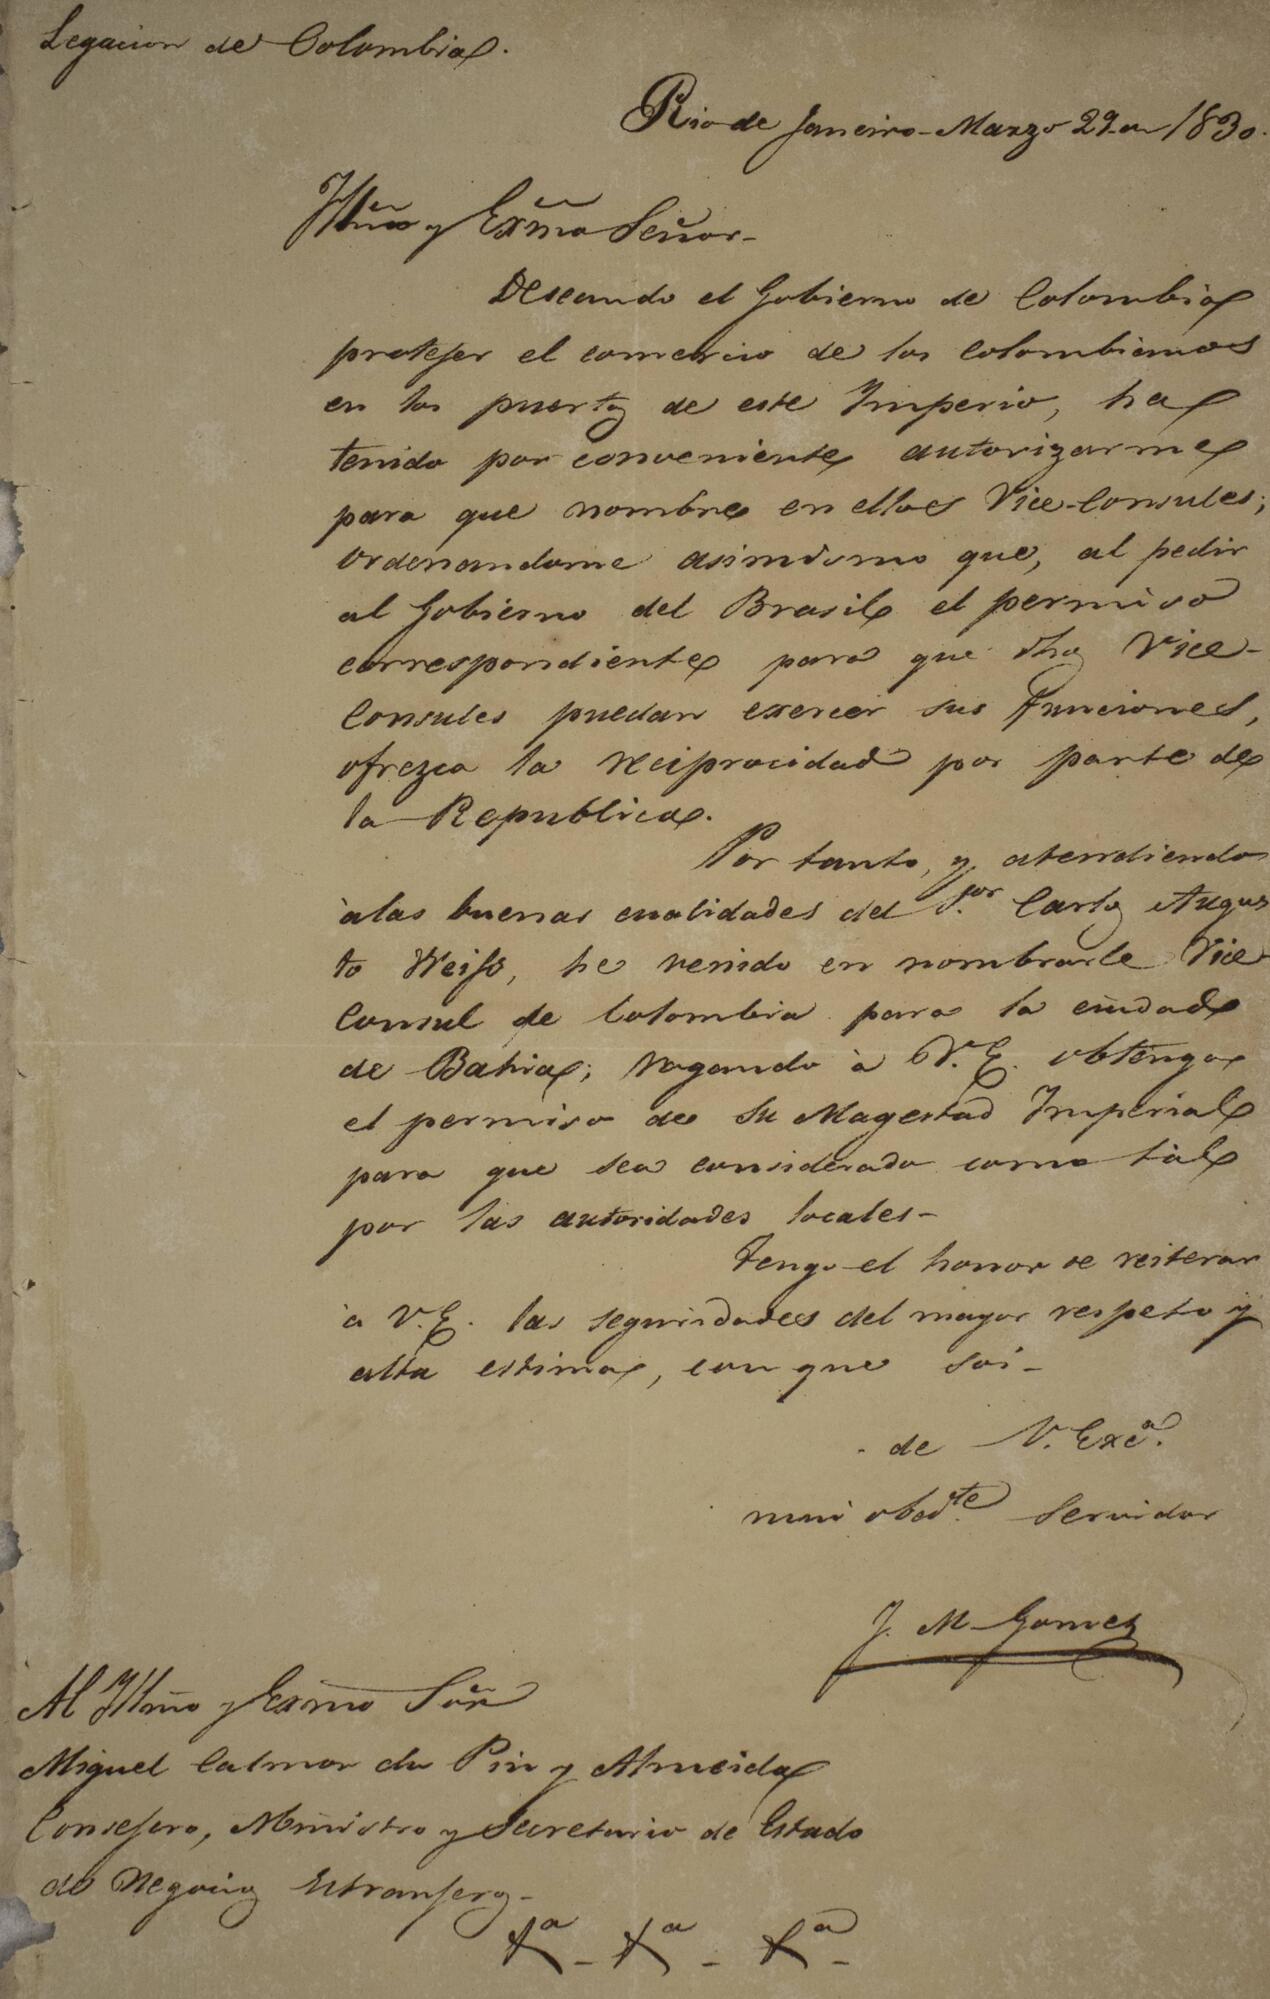 Legacion de Colombia.
Rio de Janeiro - Marzo 29 - 1830.
Illm̃o y Exm̃o Señor -
Deseando el Gobierno de Colombia
protejer el comercio de los Colombianos
en los puertos de este Imperio, ha
tenido por conveniente autorizarme
para que nombre en ellos Vice-Consules;
ordenandome asimismo que, al pedir
al Gobierno del Brasil el permiso
correspondiente para que dhos Vice-
Consules puedan exercer sus funciones,
ofrezca la reciprocidad por parte de
la Republica.
Por tanto, y atendiendo
à las buenas cualidades del S.or Carlos Augus
to Weiss, he venido en nombrarle Vice
Consul de Colombia para la ciudad
de Bahia; rogando à V.E. obtenga
el permiso de Su Magestad Imperial
para que sea considerado como tal
por las autoridades locales -
Tengo el honor de reiterar
à V.E. las seguridades del mayor respeto y
alta estima, con que soi -
de V. Exc.a
mui obed.te Servidor
J. M. Gomez
Al Illm̃o y Exm̃o Sõr
Miguel Calmon du Pin y Almeida
Consejero, Ministro y Secretario de Estado
de Negocios Estranjeros -
&a - &a - &a -